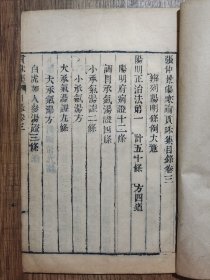 張仲景傷寒論貫珠集目錄卷三
辨列陽明條例大意
陽明正治法第一 計五十條 方四道
陽明府病證十二條
調胃承氣湯證四條
小承氣湯證二條
小承氣湯方
大承氣湯證九條
大承氣湯方
白虎加人參湯證三條